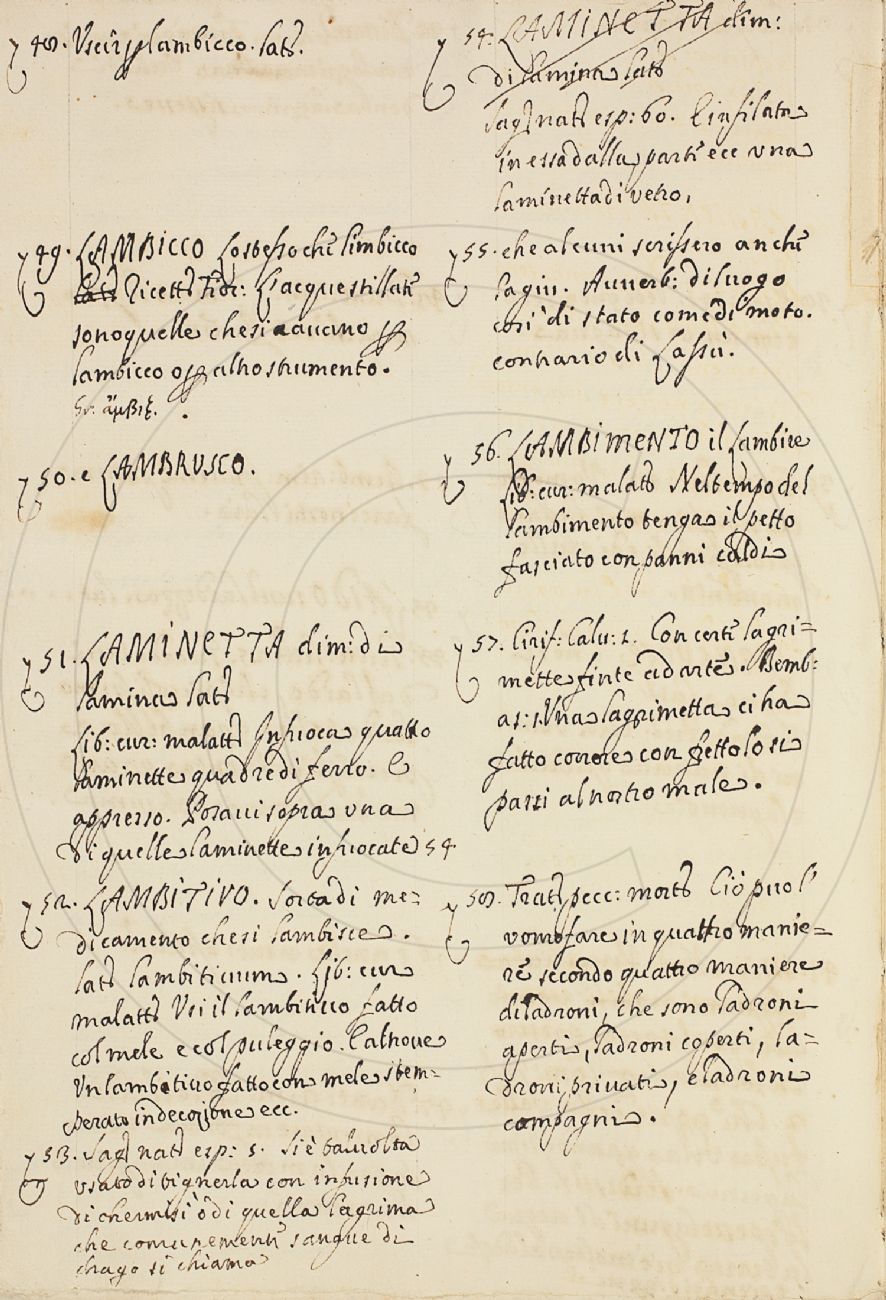 48. Uscir p lambicco. lat.
49. LAMBICCO Lo stesso che limbicco
lat. Ricett. Fior: L'acque stillate
sono quelle che si cavano p
lambicco o p altro strumento.
Gr: ἄμβιξ.
50. e LAMBRUSCO.
51. LAMINETTA dim: di
lamina lat.
Lib: cur: malatt. Infuoca quattro
laminette quadre di ferro. E
appresso. Posavi sopra una
di quelle laminette infuocate 54
52. LAMBITIVO. Sorta di me=
dicamento che si lambisce.
lat. lambitivum. Lib: cur
malatt. Usi il lambitivo fatto
col mele e col puleggio. E altrove
Un lambitivo fatto con mele stem=
perato in decozione ecc.
53. Sag. nat. esp: 5. Si è talvolta
usato di tignerla con infusione
di chermisi ò di quella lagrima
che comunemente sangue di
drago si chiama
54. LAMINETTA dim:
di lamina lat.
Sag. nat. esp: 60. E infilata
in essa dalla parte ecc una
laminetta di vetro,
55. che alcuni scrissero anche
lagiu. Avverb: di luogo
così di stato come di moto.
contrario di Lassù.
56. LAMBIMENTO il Lambire
Lib: cur: malatt. Nel tempo del
lambimento tenga il petto
fasciato con panni caldi
57. Cirif: Calv: 1. Con certe lagri=
mette finte ad arte. Bemb:
as: 1. Una lagrimetta ci ha
fatto correre con gettolo si
parti al nostro male.
58. Tratt. pecc: mort. Ciò può l'
uomo fare in quattro manie=
re secondo quattro maniere
di ladroni, che sono ladroni
aperti, ladroni coperti, la=
droni privati, e ladroni
compagni.